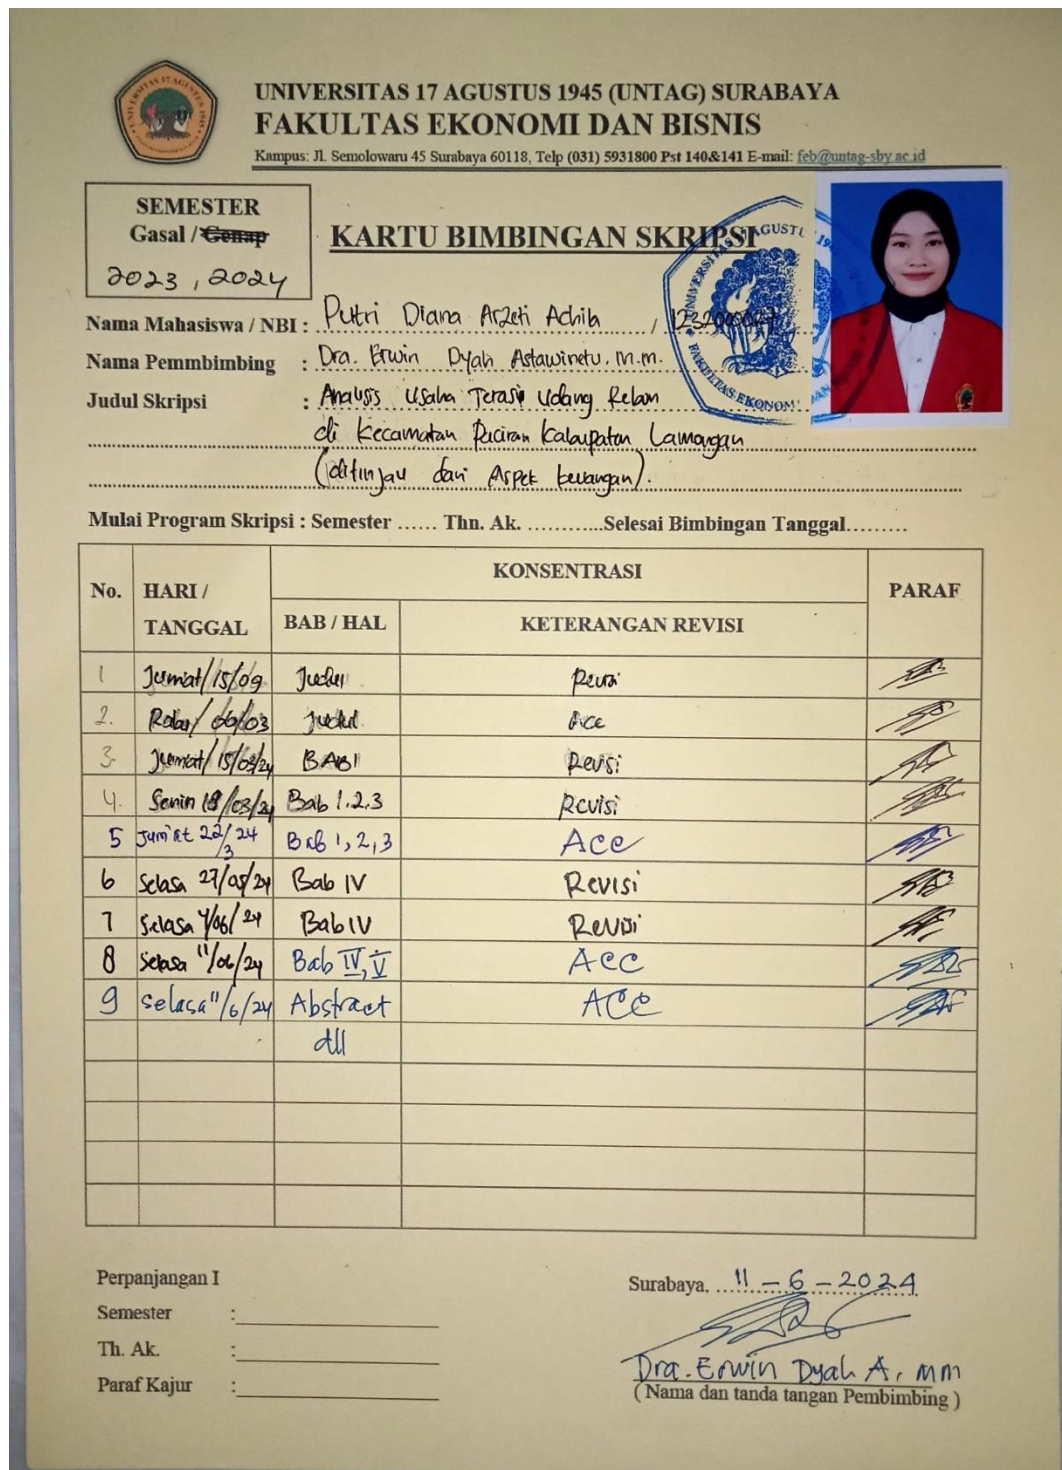 UNIVERSITAS 17 AGUSTUS 1945 (UNTAG) SURABAYA
FAKULTAS EKONOMI DAN BISNIS
Kampus: Jl. Semolowaru 45 Surabaya 60118, Telp (031) 5931800 Pst 140&141 E-mail: feb@untag-sby.ac.id
SEMESTER
Gasal / Genap
2023, 2024
KARTU BIMBINGAN SKRIPSI
Nama Mahasiswa / NBI : Putri Diana Arzeti Adhila /
Nama Pemmbimbing : Dra. Erwin Dyah Astawinetu. M.M.
Judul Skripsi : Analisis Usaha Terasi Udang Rebon
di Kecamatan Paciran Kabupaten Lamongan
(ditinjau dari Aspek keuangan).
Mulai Program Skripsi : Semester ...... Thn. Ak. ............Selesai Bimbingan Tanggal.........
No. HARI / TANGGAL KONSENTRASI PARAF
BAB / HAL KETERANGAN REVISI
1 Jumat/15/09 Judul Revisi
2. Rabu/ 06/03 Judul Acc
3. Jumat/15/03/24 BAB I Revisi
4. Senin 18/03/24 Bab 1.2.3 Revisi
5 Jum'at 22/3/24 Bab 1, 2, 3 Acc
6 Selasa 27/05/24 Bab IV Revisi
7 Selasa 4/06/24 Bab IV Revisi
8 Selasa 11/06/24 Bab IV, V ACC
9 Selasa 11/6/24 Abstract ACC
dll
Perpanjangan I
Semester :
Th. Ak. :
Paraf Kajur :
Surabaya, 11 - 6 - 2024
Dra. Erwin Dyah A, MM
( Nama dan tanda tangan Pembimbing )